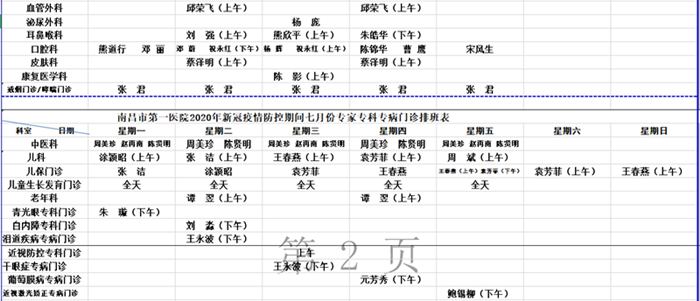 血管外科 邱荣飞（上午） 邱荣飞（上午）
泌尿外科 杨 庞
耳鼻喉科 刘 强（上午） 熊欣平（上午） 朱皓华（下午）
口腔科 熊道行 邓 丽 邓 蔚 祝永红（下午） 杨 辉 祝永红（上午） 陈锦华 曹 鹰 宋风生
皮肤科 蔡泽明（上午） 蔡泽明（上午）
康复医学科 陈 影（上午）
戒烟门诊/哮喘门诊 张 君 张 君 张 君 张 君 张 君
南昌市第一医院2020年新冠疫情防控期间七月份专家专科专病门诊排班表
科室 日期 星期一 星期二 星期三 星期四 星期五 星期六 星期日
中医科 周美珍 赵再南 陈贤明 周美珍 陈贤明 周美珍 赵再南 陈贤明 周美珍 陈贤明 周美珍 赵再南 陈贤明
儿科 涂颖昭（上午） 张 洁（上午） 王春燕（上午） 袁芳菲（上午） 周 斌（上午）
儿保门诊 张 洁 涂颖昭 袁芳菲 王春燕 王春燕（上午）袁芳菲（下午） 袁芳菲（上午） 王春燕（上午）
儿童生长发育门诊 全天 全天 全天 全天 全天
老年科 谭 翌（上午） 谭 翌（上午）
青光眼专科门诊 朱 璇（下午）
白内障专科门诊 刘 淼（下午）
泪道疾病专病门诊 王永波（下午）
第 2 页
近视防控专科门诊 上午
干眼症专病门诊 王永波（下午）
葡萄膜病专病门诊 元芳秀（下午）
近视激光矫正专病门诊 鲍锡柳（下午）